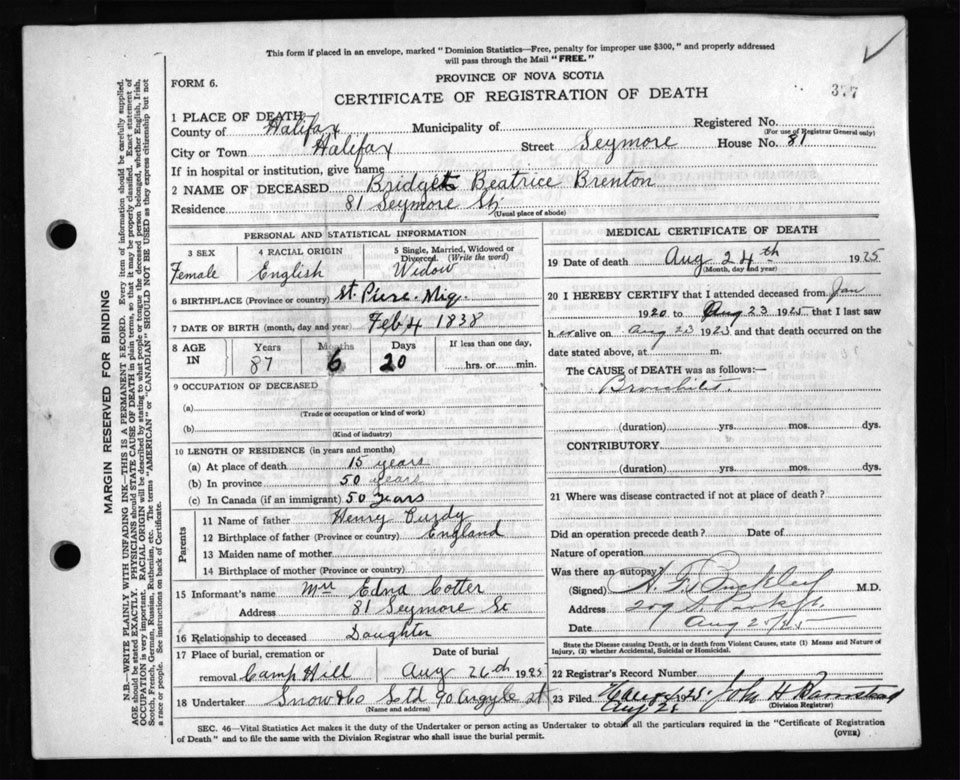 This form if placed in an envelope, marked "Dominion Statistics—Free, penalty for improper use $300," and properly addressed
will pass through the Mail "FREE."
FORM 6.
PROVINCE OF NOVA SCOTIA
377
CERTIFICATE OF REGISTRATION OF DEATH
1 PLACE OF DEATH
County of Halifax Municipality of Registered No.
(For use of Registrar General only)
City or Town Halifax Street Seymore House No. 81
If in hospital or institution, give name
2 NAME OF DECEASED Bridget Beatrice Brenton
Residence 81 Seymore St.
(Usual place of abode)
PERSONAL AND STATISTICAL INFORMATION
3 SEX 4 RACIAL ORIGIN 5 Single, Married, Widowed or
Divorced. (Write the word)
Female English Widow
6 BIRTHPLACE (Province or country) St. Piere. Miq.
7 DATE OF BIRTH (month, day and year) Feb 4 1838
8 AGE IN Years Months Days If less than one day,
87 6 20 hrs. or min.
9 OCCUPATION OF DECEASED
(a)
(Trade or occupation or kind of work)
(b)
(Kind of industry)
10 LENGTH OF RESIDENCE (in years and months)
(a) At place of death 15 years
(b) In province 50 years
(c) In Canada (if an immigrant) 50 years
Parents
11 Name of father Henry Purdy
12 Birthplace of father (Province or country) England
13 Maiden name of mother
14 Birthplace of mother (Province or country)
15 Informant's name Mrs Edna Cotter
Address 81 Seymore St
16 Relationship to deceased Daughter
17 Place of burial, cremation or Date of burial
removal Camp Hill Aug 26th 1925
18 Undertaker Snow & Co Ltd 90 Argyle St
(Name and address)
MEDICAL CERTIFICATE OF DEATH
19 Date of death Aug 24th 1925
(Month, day and year)
20 I HEREBY CERTIFY that I attended deceased from Jan
1920 to Aug 23 1925 that I last saw
h er alive on Aug 23 1925 and that death occurred on the
date stated above, at m.
The CAUSE of DEATH was as follows:—
Bronchitis.
(duration) yrs. mos. dys.
CONTRIBUTORY.
(duration) yrs. mos. dys.
21 Where was disease contracted if not at place of death?
Did an operation precede death? Date of
Nature of operation
Was there an autopsy?
(Signed) A. F. Buckley M.D.
Address 209 S. Park St.
Date Aug 25/25
State the Disease causing Death, or in death from Violent Causes, state (1) Means and Nature of
Injury, (2) whether Accidental, Suicidal or Homicidal.
22 Registrar's Record Number
23 Filed 1925. John H Barnstead
Aug 26
(Division Registrar)
SEC. 46—Vital Statistics Act makes it the duty of the Undertaker or person acting as Undertaker to obtain all the particulars required in the "Certificate of Registration
of Death" and to file the same with the Division Registrar who shall issue the burial permit.
(OVER)
MARGIN RESERVED FOR BINDING
N.B.—WRITE PLAINLY WITH UNFADING INK—THIS IS A PERMANENT RECORD. Every item of information should be carefully supplied.
AGE should be stated EXACTLY. PHYSICIANS should STATE CAUSE OF DEATH in plain terms, so that it may be properly classified. Exact statement of
OCCUPATION is very important. RACIAL ORIGIN will be described by stating to what people or tongue the deceased person belonged, whether English, Irish,
Scotch, French, German, Russian, Ruthenian, etc. The terms "AMERICAN" or "CANADIAN" SHOULD NOT BE USED as they express citizenship but not
a race or people. See instructions on back of Certificate.